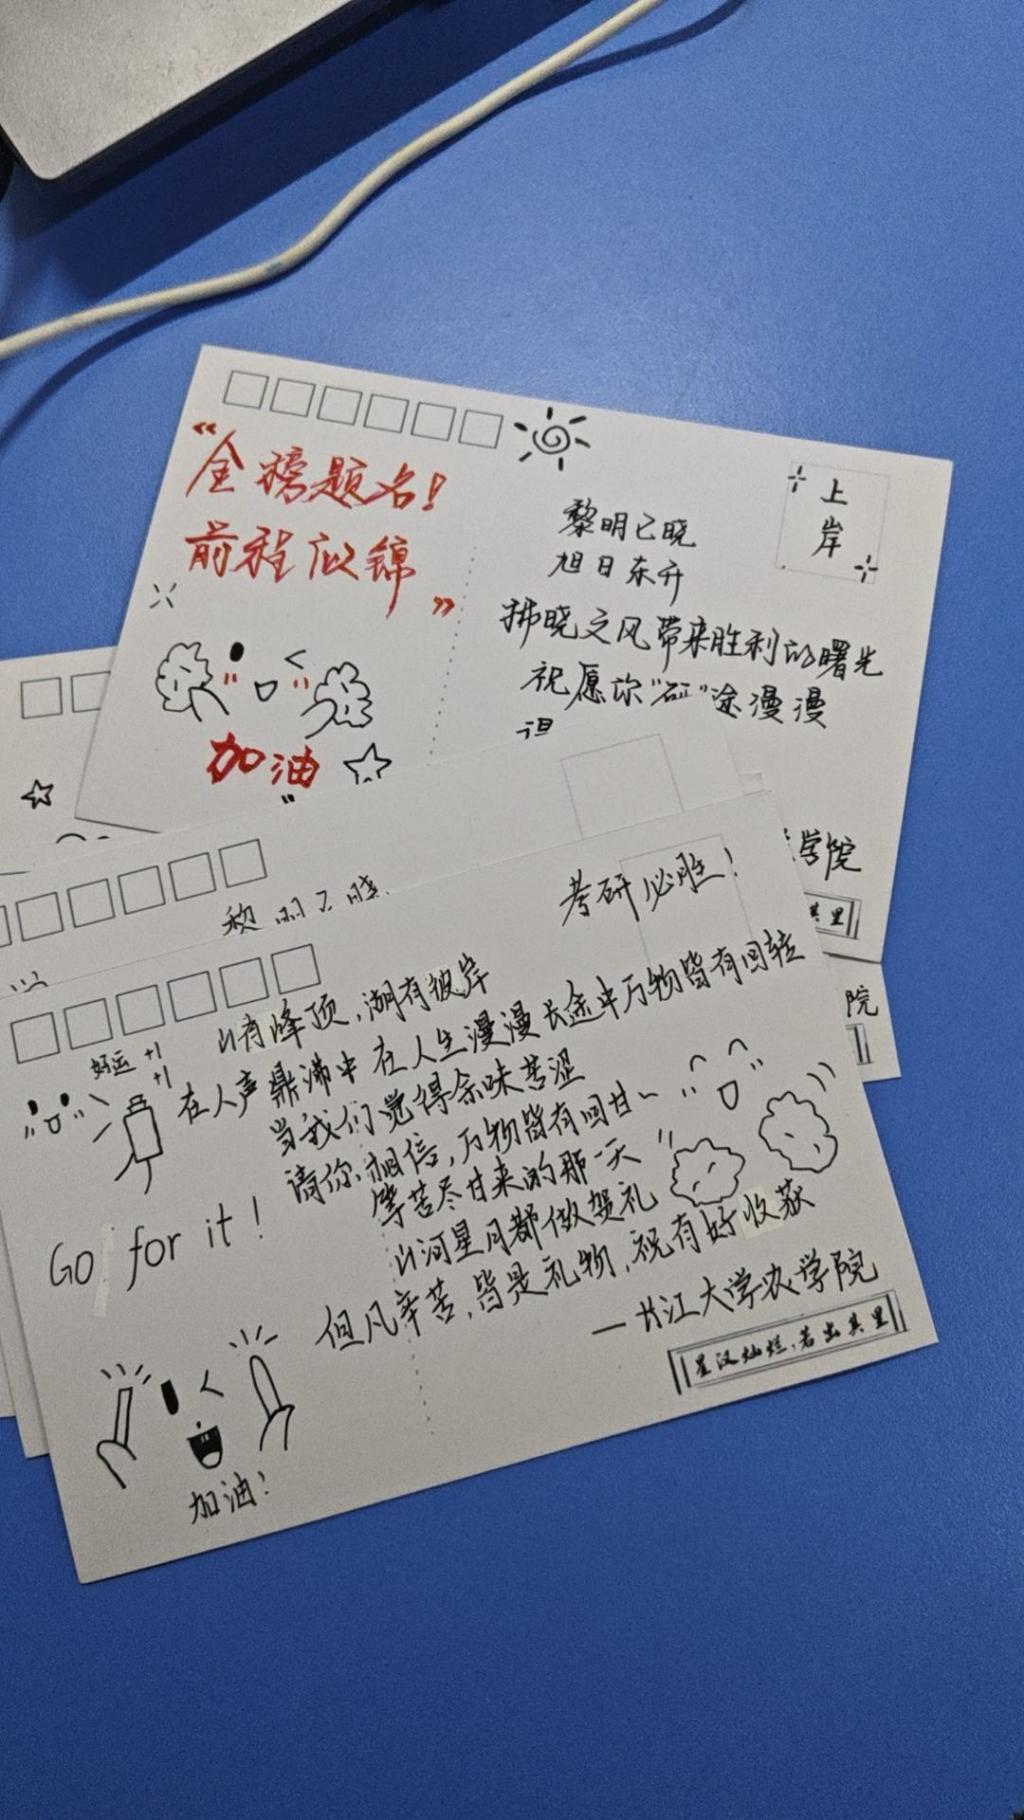 “金榜题名!
前程似锦”
加油
上
岸
黎明已晓
旭日东升
拂晓之风带来胜利的曙光
祝愿你“研”途漫漫
学院
其里
院
黎明已晓
考研必胜!
山有峰顶,湖有彼岸
在人声鼎沸中 在人生漫漫长途中万物皆有回转
当我们觉得余味苦涩
请你相信,万物皆有回甘~
等苦尽甘来的那一天
山河星月都做贺礼
但凡辛苦,皆是礼物,祝有好收获
—长江大学农学院
星汉灿烂,若出其里
好运 +1
+1
Go for it!
加油!